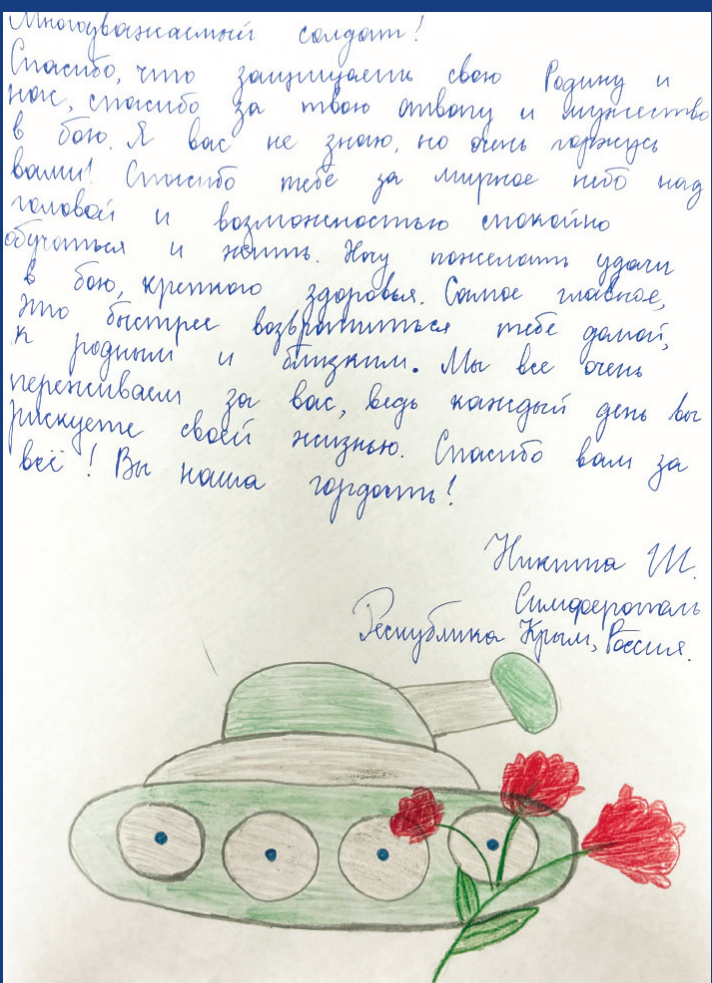 Многоуважаемый солдат!
Спасибо, что защищаешь свою Родину и
нас, спасибо за твою отвагу и мужество
в бою. Я вас не знаю, но очень горжусь
вами! Спасибо тебе за мирное небо над
головой и возможностью спокойно
обучаться и жить. Хочу пожелать удачи
в бою, крепкого здоровья. Самое главное,
это быстрее возвратиться тебе домой,
к родным и близким. Мы все очень
переживаем за вас, ведь каждый день вы
рискуете своей жизнью. Спасибо вам за
всё! Вы наша гордость!
Никита Ш.
Симферополь
Республика Крым, Россия.